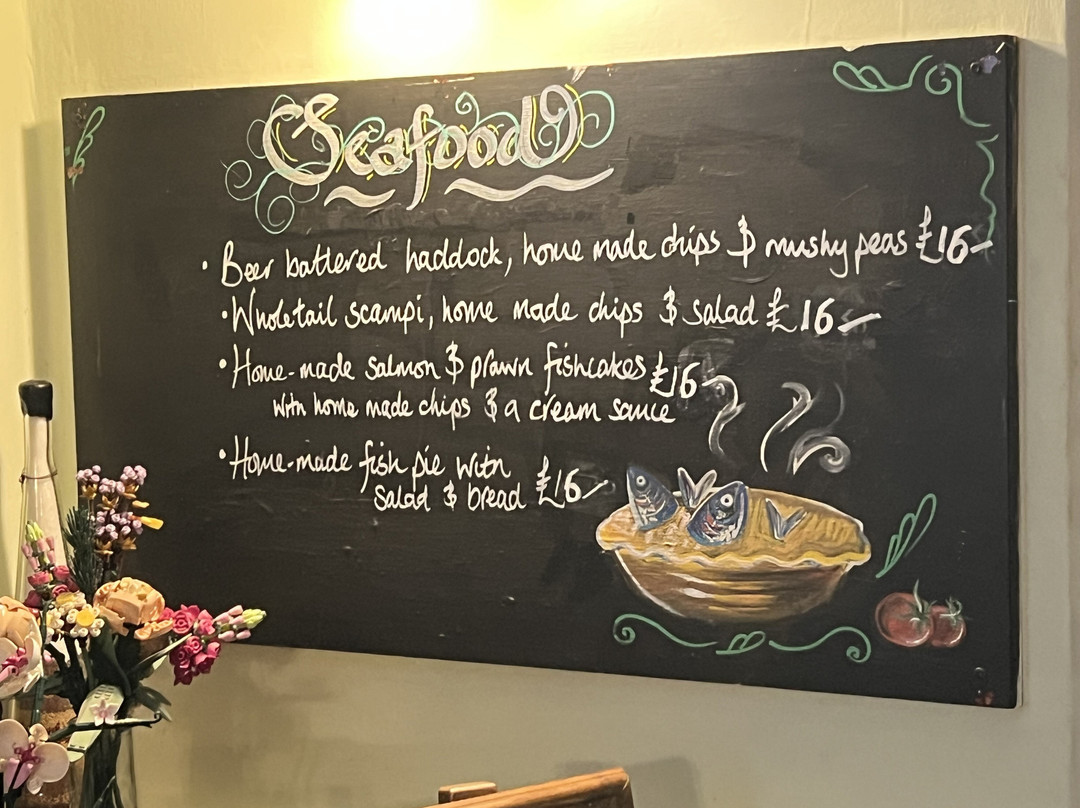 Seafood
• Beer battered haddock, home made chips & mushy peas £16
• Wholetail scampi, home made chips & salad £16
• Home-made salmon & prawn fishcakes £16
with home made chips & a cream sauce
• Home-made fish pie with
salad & bread £16